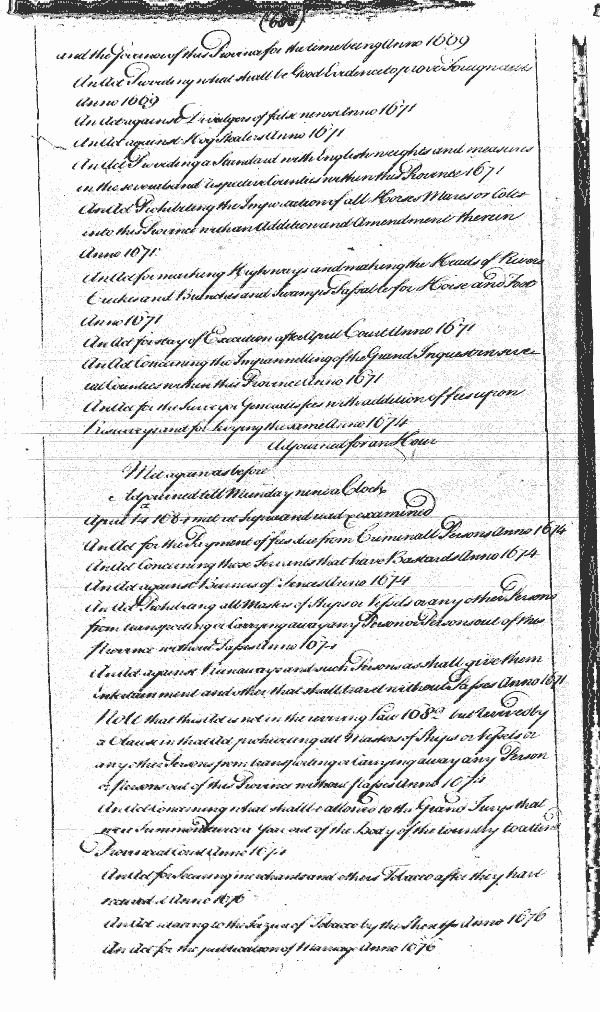 and the Governor of this Province for the time being Anno 1669
An Act Providing what shall be Good Evidence to prove Foreign debts
Anno 1669
An Act against Divulgers of false news Anno 1671
An Act against Hog Stealers Anno 1671
An Act Providing a Standard with English weights and measures
in the several and respective Counties within this Province 1671
An Act Prohibiting the Importation of all Horses Mares or Colts
into this Province with an Addition and Amendment therein
Anno 1671
An Act for marking Highways and making the Heads of Rivers
Creekes and Branches and Swamps Passable for Horse and Foot
Anno 1671
An Act for stay of Execution after April Court Anno 1671
An Act Concerning the Impannelling of the Grand Inquest in seve
ral Counties within this Province Anno 1671
An Act for the Surveyor Generalls fees with addition of fees upon
Resurveys and for keeping the same Anno 1674
Adjourned for an Hour
Met again as before
Adjourned till Munday nine a Clock
April 14 1684 met at Signa and read & examined
An Act for the Payment of fees due from Criminall Persons Anno 1674
An Act Concerning those Servants that have Bastards Anno 1674
An Act against Burners of Fences Anno 1674
An Act Prohibiting all Masters of Ships or Vessels or any other Persons
from transporting or Carrying away any Person or Persons out of this
Province without Passes Anno 1674
An Act against Runaways and such Persons as shall give them
Entertainment and other that shall travel without Passes Anno 1671
Note that this Act is not in the reviving Law 168 but Revived by
a Clause in that Act prohibiting all Masters of Ships or Vessels or
any other Persons from transporting or Carrying away any Person
or Persons out of this Province without passes Anno 1674
An Act Concerning what shall be allowed to the Grand Jurys that
were Summoned twice a Year out of the Body of the Country to attend
Provincial Court Anno 1674
An Act for Securing merchants and others Tobacco after they have
received it Anno 1676
An Act relating to the Seizure of Tobacco by the Sheriffs Anno 1676
An Act for the publication of Marriage Anno 1676